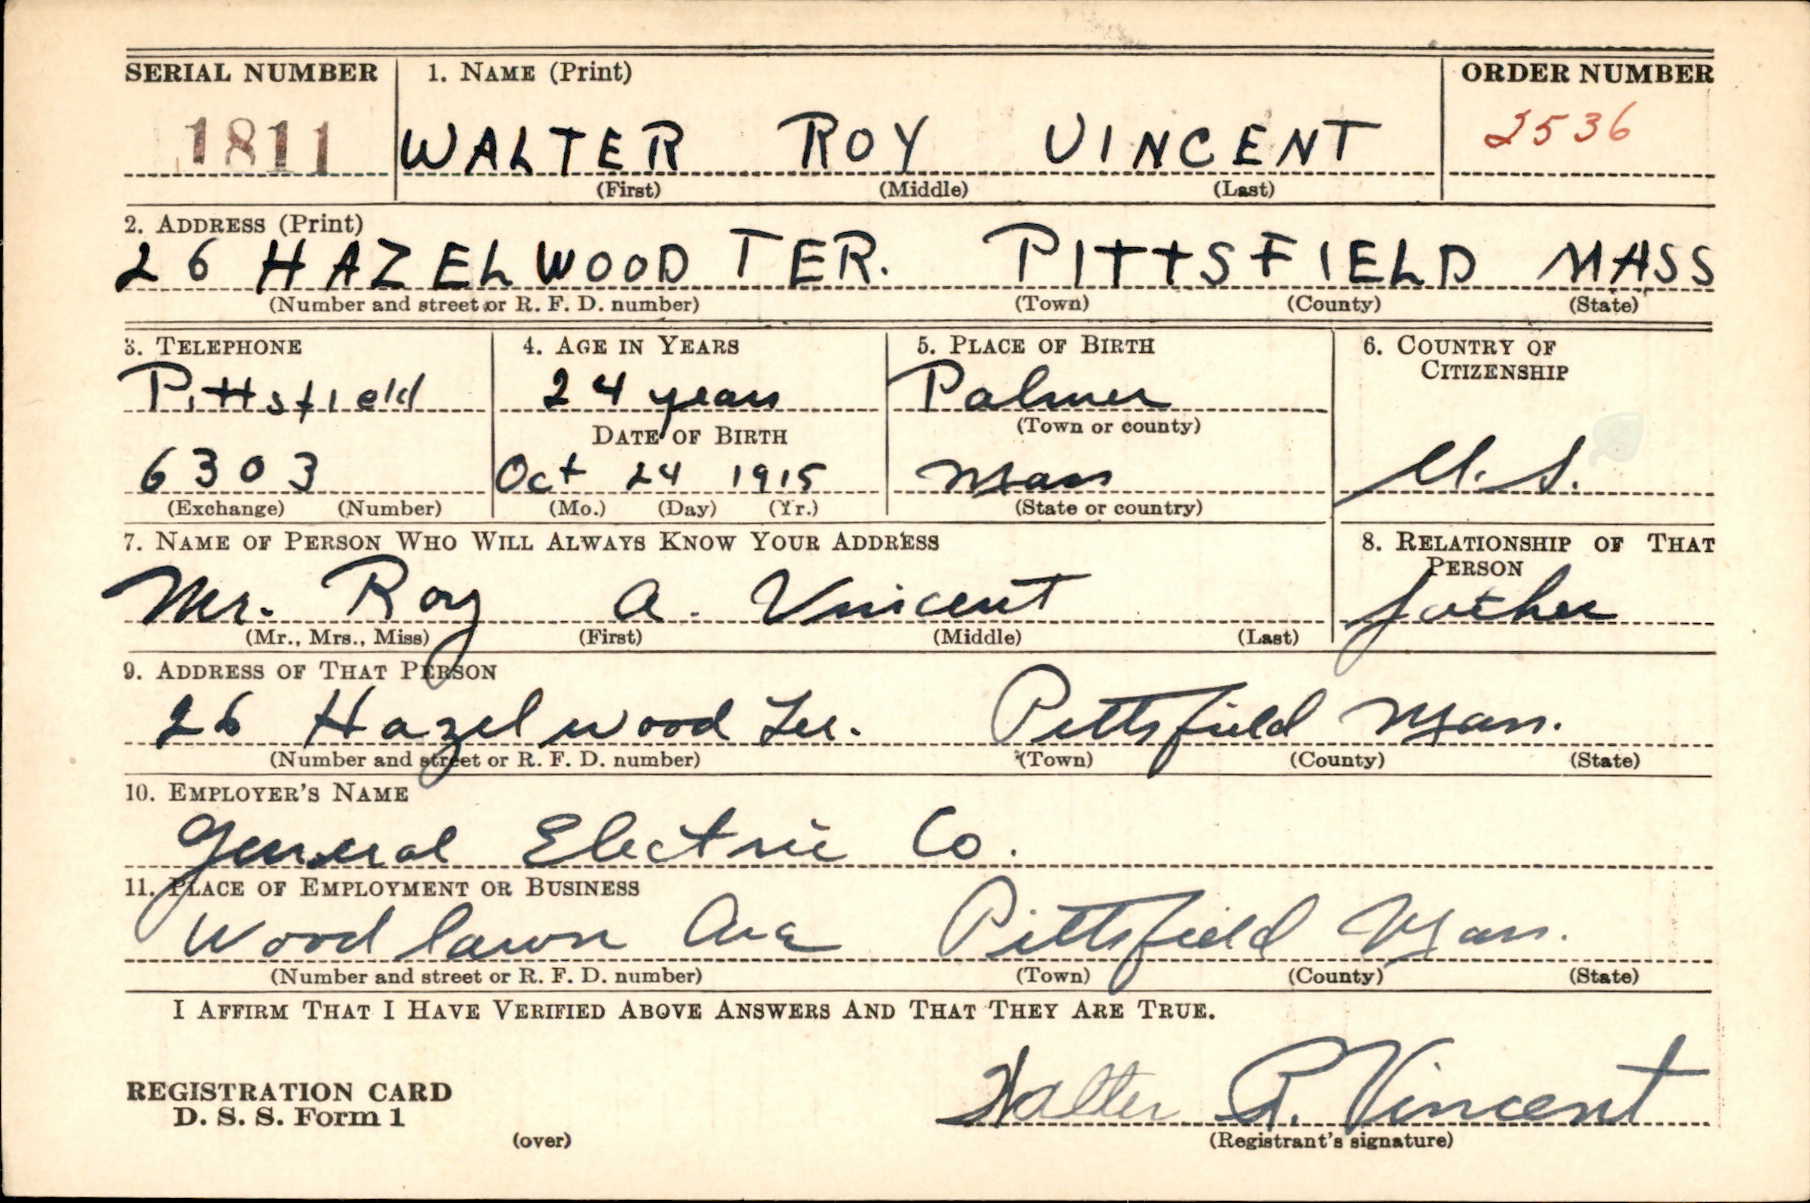 SERIAL NUMBER 1. NAME (Print) ORDER NUMBER
1811 WALTER ROY VINCENT 2536
(First) (Middle) (Last)
2. ADDRESS (Print)
26 HAZELWOOD TER. PITTSFIELD MASS
(Number and street or R. F. D. number) (Town) (County) (State)
3. TELEPHONE 4. AGE IN YEARS 5. PLACE OF BIRTH 6. COUNTRY OF
CITIZENSHIP
Pittsfield 24 years Palmer
DATE OF BIRTH (Town or county)
6303 Oct 24 1915 Mass U.S.
(Exchange) (Number) (Mo.) (Day) (Yr.) (State or country)
7. NAME OF PERSON WHO WILL ALWAYS KNOW YOUR ADDRESS 8. RELATIONSHIP OF THAT
PERSON
Mr. Roy A. Vincent father
(Mr., Mrs., Miss) (First) (Middle) (Last)
9. ADDRESS OF THAT PERSON
26 Hazelwood Ter. Pittsfield Mass.
(Number and street or R. F. D. number) (Town) (County) (State)
10. EMPLOYER'S NAME
General Electric Co.
11. PLACE OF EMPLOYMENT OR BUSINESS
Woodlawn Ave Pittsfield Mass.
(Number and street or R. F. D. number) (Town) (County) (State)
I AFFIRM THAT I HAVE VERIFIED ABOVE ANSWERS AND THAT THEY ARE TRUE.
REGISTRATION CARD
D. S. S. Form 1 Walter R. Vincent
(over) (Registrant's signature)